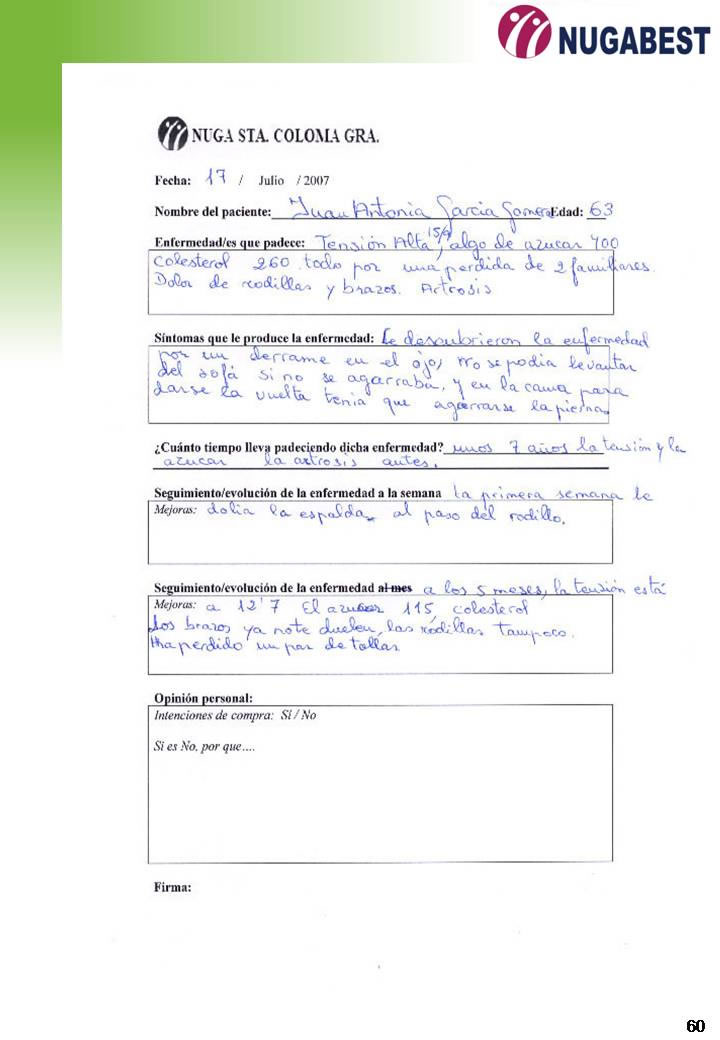 NUGABEST
NUGA STA. COLOMA GRA.
Fecha: 17 / Julio / 2007
Nombre del paciente: Juan Antonia Garcia Gomera Edad: 63
Enfermedad/es que padece: Tensión Alta 15/9, algo de azucar 400
colesterol 260. todo por una perdida de 2 familiares.
Dolor de rodillas y brazos. Artrosis
Síntomas que le produce la enfermedad: Le descubrieron la enfermedad
por un derrame en el ojo, no se podia levantar
del sofá si no se agarraba, y en la cama para
darse la vuelta tenia que agarrarse la pierna.
¿Cuánto tiempo lleva padeciendo dicha enfermedad? unos 7 años la tensión y la
azucar la artrosis antes.
Seguimiento/evolución de la enfermedad a la semana la primera semana le
Mejoras: dolia la espalda al paso del rodillo.
Seguimiento/evolución de la enfermedad al mes a los 5 meses, la tensión está
Mejoras: a 12'7 El azucar 115, colesterol
Los brazos ya no te duelen, las rodillas tampoco.
Ha perdido un par de tallas
Opinión personal:
Intenciones de compra: Si / No
Si es No, por que....
Firma:
60